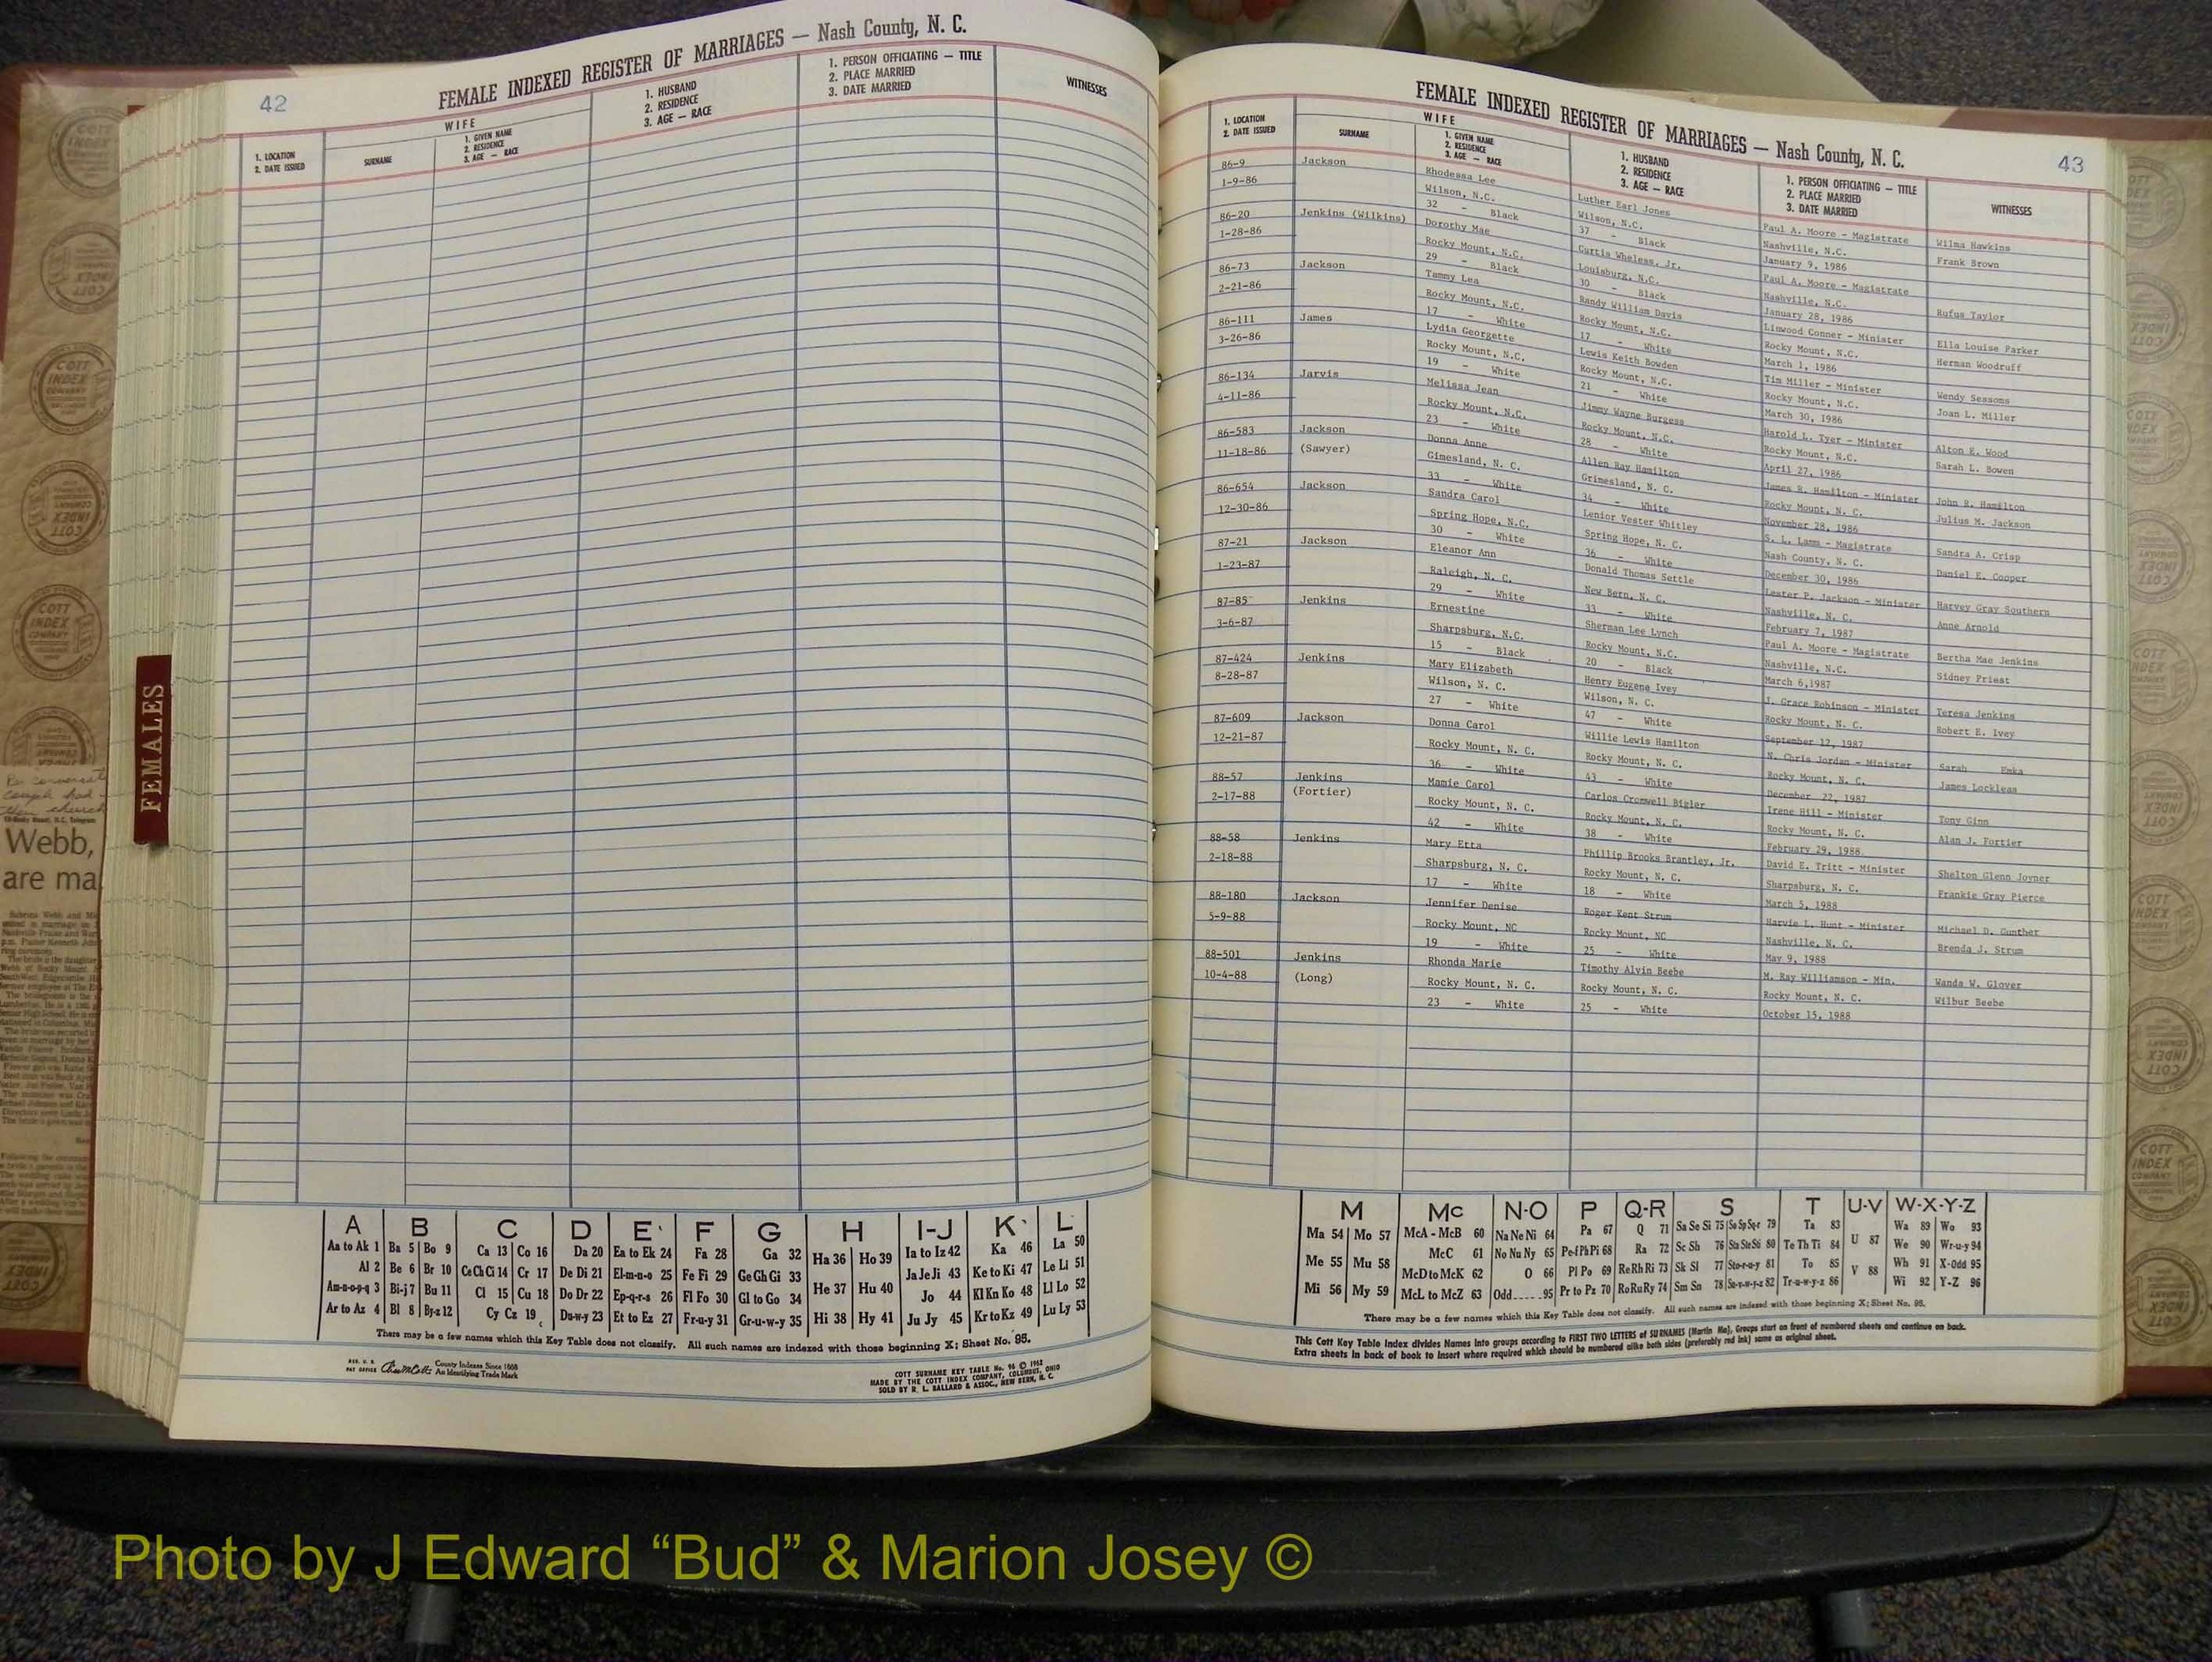 42
FEMALE INDEXED REGISTER OF MARRIAGES — Nash County, N. C.
1. LOCATION
2. DATE ISSUED
WIFE
SURNAME
1. GIVEN NAME
2. RESIDENCE
3. AGE — RACE
1. HUSBAND
2. RESIDENCE
3. AGE — RACE
1. PERSON OFFICIATING — TITLE
2. PLACE MARRIED
3. DATE MARRIED
WITNESSES
FEMALES
Webb,
are ma
A B C D E F G H I-J K L
Aa to Ak 1 Ba 5 Bo 9 Ca 13 Co 16 Da 20 Ea to Ek 24 Fa 28 Ga 32 Ha 36 Ho 39 Ia to Iz 42 Ka 46 La 50
Al 2 Be 6 Br 10 Ce Ch Ci 14 Cr 17 De Di 21 El-m-n-o 25 Fe Fi 29 Ge Gh Gi 33 He 37 Hu 40 Ja Je Ji 43 Ke to Ki 47 Le Li 51
Am-n-o-p-q 3 Bi-j 7 Bu 11 Cl 15 Cu 18 Do Dr 22 Ep-q-r-s 26 Fl Fo 30 Gl to Go 34 Hi 38 Hy 41 Jo 44 Kl Kn Ko 48 Ll Lo 52
Ar to Az 4 Bl 8 By-z 12 Cy Cz 19 Du-w-y 23 Et to Ez 27 Fr-u-y 31 Gr-u-w-y 35 Ju Jy 45 Kr to Kz 49 Lu Ly 53
There may be a few names which this Key Table does not classify. All such names are indexed with those beginning X; Sheet No. 95.
REG. U. S.
PAT OFFICE
County Indexes Since 1888
An Identifying Trade Mark
COTT SURNAME KEY TABLE No. 96 © 1962
MADE BY THE COTT INDEX COMPANY, COLUMBUS, OHIO
SOLD BY R. L. BALLARD & ASSOC., NEW BERN, N. C.
FEMALE INDEXED REGISTER OF MARRIAGES — Nash County, N. C.
43
1. LOCATION
2. DATE ISSUED
WIFE
SURNAME
1. GIVEN NAME
2. RESIDENCE
3. AGE — RACE
1. HUSBAND
2. RESIDENCE
3. AGE — RACE
1. PERSON OFFICIATING — TITLE
2. PLACE MARRIED
3. DATE MARRIED
WITNESSES
86-9 Jackson Rhodessa Lee Luther Earl Jones Paul A. Moore - Magistrate Wilma Hawkins
1-9-86 Wilson, N.C. Wilson, N.C. Nashville, N.C. Frank Brown
32 - Black 37 - Black January 9, 1986
86-20 Jenkins (Wilkins) Dorothy Mae Curtis Wheless, Jr. Paul A. Moore - Magistrate
1-28-86 Rocky Mount, N.C. Louisburg, N.C. Nashville, N.C. Rufus Taylor
29 - Black 30 - Black January 28, 1986
86-73 Jackson Tammy Lea Randy William Davis Linwood Conner - Minister Ella Louise Parker
2-21-86 Rocky Mount, N.C. Rocky Mount, N.C. Rocky Mount, N.C. Herman Woodruff
17 - White 17 - White March 1, 1986
86-111 James Lydia Georgette Lewis Keith Bowden Tim Miller - Minister Wendy Sessoms
3-26-86 Rocky Mount, N.C. Rocky Mount, N.C. Rocky Mount, N.C. Joan L. Miller
19 - White 21 - White March 30, 1986
86-134 Jarvis Melissa Jean Jimmy Wayne Burgess Harold L. Tyer - Minister Alton E. Wood
4-11-86 Rocky Mount, N.C. Rocky Mount, N.C. Rocky Mount, N.C. Sarah L. Bowen
23 - White 28 - White April 27, 1986
86-583 Jackson Donna Anne Allen Ray Hamilton James R. Hamilton - Minister John R. Hamilton
11-18-86 (Sawyer) Gimesland, N. C. Grimesland, N. C. Rocky Mount, N. C. Julius M. Jackson
33 - White 34 - White November 28, 1986
86-654 Jackson Sandra Carol Lenior Vester Whitley S. L. Lamm - Magistrate Sandra A. Crisp
12-30-86 Spring Hope, N.C. Spring Hope, N. C. Nash County, N. C. Daniel E. Cooper
30 - White 36 - White December 30, 1986
87-21 Jackson Eleanor Ann Donald Thomas Settle Lester P. Jackson - Minister Harvey Gray Southern
1-23-87 Raleigh, N. C. New Bern, N. C. Nashville, N. C. Anne Arnold
29 - White 33 - White February 7, 1987
87-85 Jenkins Ernestine Sherman Lee Lynch Paul A. Moore - Magistrate Bertha Mae Jenkins
3-6-87 Sharpsburg, N.C. Rocky Mount, N.C. Nashville, N.C. Sidney Priest
15 - Black 20 - Black March 6,1987
87-424 Jenkins Mary Elizabeth Henry Eugene Ivey J. Grace Robinson - Minister Teresa Jenkins
8-28-87 Wilson, N. C. Wilson, N. C. Rocky Mount, N. C. Robert E. Ivey
27 - White 47 - White September 12, 1987
87-609 Jackson Donna Carol Willie Lewis Hamilton N. Chris Jordan - Minister Sarah Emka
12-21-87 Rocky Mount, N. C. Rocky Mount, N. C. Rocky Mount, N. C. James Lockleas
36 - White 43 - White December 22, 1987
88-57 Jenkins Mamie Carol Carlos Cromwell Bigler Irene Hill - Minister Tony Ginn
2-17-88 (Fortier) Rocky Mount, N. C. Rocky Mount, N. C. Rocky Mount, N. C. Alan J. Fortier
42 - White 38 - White February 29, 1988
88-58 Jenkins Mary Etta Phillip Brooks Brantley, Jr. David E. Tritt - Minister Shelton Glenn Joyner
2-18-88 Sharpsburg, N. C. Rocky Mount, N. C. Sharpsburg, N. C. Frankie Gray Pierce
17 - White 18 - White March 5, 1988
88-180 Jackson Jennifer Denise Roger Kent Strum Harvie L. Hunt - Minister Michael D. Gunther
5-9-88 Rocky Mount, NC Rocky Mount, NC Nashville, N. C. Brenda J. Strum
19 - White 25 - White May 9, 1988
88-501 Jenkins Rhonda Marie Timothy Alvin Beebe M. Ray Williamson - Min. Wanda W. Glover
10-4-88 (Long) Rocky Mount, N. C. Rocky Mount, N. C. Rocky Mount, N. C. Wilbur Beebe
23 - White 25 - White October 15, 1988
M Mc N-O P Q-R S T U-V W-X-Y-Z
Ma 54 Mo 57 McA - McB 60 Na Ne Ni 64 Pa 67 Q 71 Sa Se Si 75 So Sp Sq-r 79 Ta 83 U 87 Wa 89 Wo 93
Me 55 Mu 58 McC 61 No Nu Ny 65 Pe-f Ph Pi 68 Ra 72 Sc Sh 76 Sta Ste Sti 80 Te Th Ti 84 V 88 We 90 Wr-u-y 94
McD to McK 62 O 66 Pl Po 69 Re Rh Ri 73 Sk Sl 77 Sto-r-u-y 81 To 85 Wh 91 X-Odd 95
Mi 56 My 59 McL to McZ 63 Odd 95 Pr to Pz 70 Ro Ru Ry 74 Sm Sn 78 Su-v-w-y-z 82 Tr-u-w-y-z 86 Wi 92 Y-Z 96
There may be a few names which this Key Table does not classify. All such names are indexed with those beginning X; Sheet No. 95.
This Cott Key Table Index divides Names into groups according to FIRST TWO LETTERS of SURNAMES (Martin Ma), Groups start on front of numbered sheets and continue on back.
Extra sheets in back of book to insert where required which should be numbered alike both sides (preferably red ink) same as original sheet.
Photo by J Edward “Bud” & Marion Josey ©